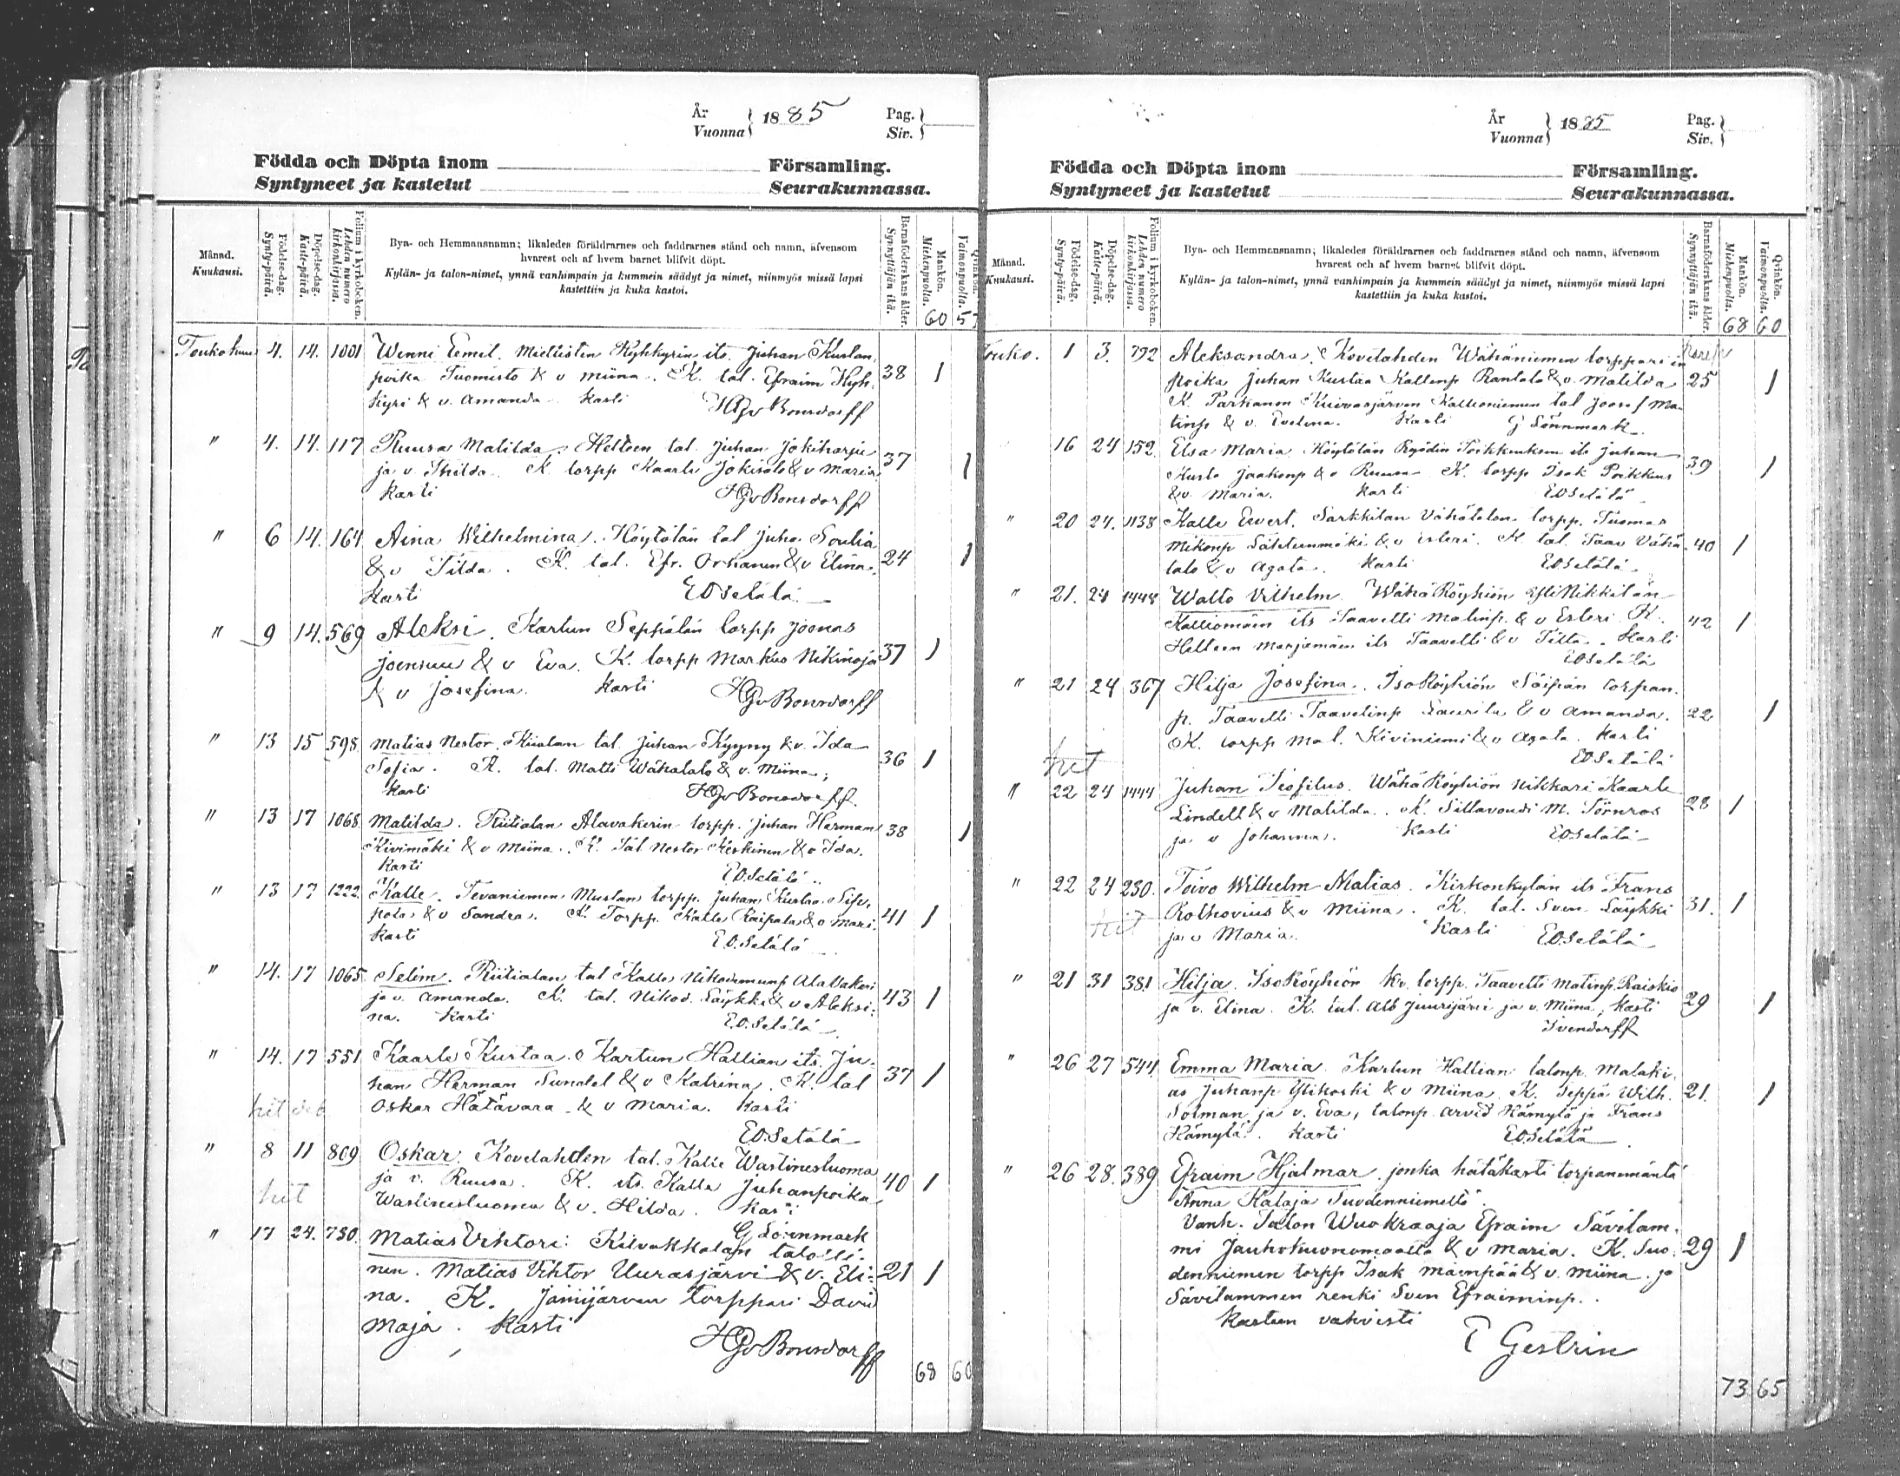 År
Vuonna } 1885 Pag.
Siv. }
Födda och Döpta inom Församling.
Syntyneet ja kastetut Seurakunnassa.
Månad. Kuukausi. Födelse-dag. Synty-päivä. Döpelse-dag. Kaste-päivä. Folium i kyrkoboken. Lehden numero kirkonkirjassa.
Bya- och Hemmansnamn; likaledes föräldrarnes och faddrarnes stånd och namn, äfvensom
hvarest och af hvem barnet blifvit döpt.
Kylän- ja talon-nimet, ynnä vanhimpain ja kummein säädyt ja nimet, niinmyös missä lapsi
kastettiin ja kuka kastoi.
Barnaföderskans ålder. Synnyttäjän ikä. Mankön. Miehenpuolta. Qvinkön. Vaimonpuolta.
60 57
Toukokuu 4. 14. 1001 Wenni Eemil. Miettisten Kyhkyrin its. Juhan Kustan
poika Tuomisto & v Miina. K. tal. Efraim Kyh- 38 1
kyri & v. Amanda. Kasti HGvBonsdorff
" 4. 14. 117 Ruusa Matilda. Helteen tal. Juhan Jokiharju
ja v. Thilda. K torpp Kaarle Jokisalo & v Maria 37 1
Kasti HGvBonsdorff
" 6 14. 164 Aina Wilhelmina. Höytölän tal Juha
& v Tilda. K. tal. Efr. & v Elina. 24 1
Kasti EOSetälä
" 9 14. 569 Aleksi. Kartun Seppälän torpp Joonas
Joensuu & v Eva. K. torpp Markus Nikinoja 37 1
& v Josefina. Kasti HGvBonsdorff
" 13 15 598 Matias Nestor. tal. Juhan Kyyny & v. Ida
Sofia. K. tal. Matti Wähätalo & v. Miina; 36 1
Kasti HGvBonsdorff.
" 13 17 1068 Matilda. Riitialan Alavakerin torpp. Juhan Herman
Kivimäki & v Miina. K. Tal Nestor Keskinen & v Ida. 38 1
Kasti EOSetälä
" 13 17 1222. Kalle. Tevaniemen Mustan torpp. Juhan Kustaa
& v Sandra. K. Torpp. Kalle Raipala & v Mari. 41 1
Kasti E.O.Setälä
" 14. 17 1065 Selim. Riitialan tal Kalle Nikodemunp AlaVakeri
ja v. Amanda. K. tal. Nikod. Säykki & v Aleksi- 43 1
na. Kasti E.O.Setälä
" 14. 17 551 Kaarle Kustaa. Kartun Hallian its. Ju-
han Herman Sundel & v Katrina. K. tal 37 1
Oskar Hätävara & v Maria. Kasti
E.O.Setälä
" 8 11 809 Oskar. Kovelahden tal. Kalle Wastinesluoma
ja v. Ruusa. K. its. Kalle Juhanpoika 40 1
Wastinesluoma & v. Hilda. Kasti
G Lönnmark
" 17 24. 730. Matias Vihtori. Kilvakkalan talolli-
nen. Matias Vihtor Uurasjärvi & v. Eli- 21 1
na. K. Jämijärven torppari David
Maja. Kasti
HGvBonsdorff
68 60
År
Vuonna } 1885 Pag.
Siv. }
Födda och Döpta inom Församling.
Syntyneet ja kastetut Seurakunnassa.
Månad. Kuukausi. Födelse-dag. Synty-päivä. Döpelse-dag. Kaste-päivä. Folium i kyrkoboken. Lehden numero kirkonkirjassa.
Bya- och Hemmansnamn; likaledes föräldrarnes och faddrarnes stånd och namn, äfvensom
hvarest och af hvem barnet blifvit döpt.
Kylän- ja talon-nimet, ynnä vanhimpain ja kummein säädyt ja nimet, niinmyös missä lapsi
kastettiin ja kuka kastoi.
Barnaföderskans ålder. Synnyttäjän ikä. Mankön. Miehenpuolta. Qvinkön. Vaimonpuolta.
68 60
Touko. 1 3. 792 Aleksandra. Kovelahden Wähäniemen torpparin
poika Juhan Kustaa Kallenp Rantala & v. Matilda 25 1
K. Parkanon Kuivasjärven Kallioniemen tal Joosef Ma-
tinp & v. Evelina. Kasti G Lönnmark
16 24 152. Elsa Maria. Höytölän Ryödin its Juhan
Kusta Jaakonp & v Ruusa K. torpp Isak Poikkeus 39 1
& v. Maria. Kasti EOSetälä
" 20 24. 1138 Kalle Evert. Sarkkilan Vähätalon torpp. Tuomas
Mikonp & v Esteri. K tal. Taav Vähä- 40 1
talo & v Agata. Kasti EOSetälä
" 21. 24 1448 Walto Vilhelm. WähäRöyhiön YliNikkilän
Kalliomäen its Taavetti Matinp. & v Esteri K. 42 1
Helteen Marjamäen its Taavetti & v Tilta. Kasti
EOSetälä
" 21 24 367 Hilja Josefina. IsoRöyhiön torpan-
p. Taavetti Taavetinp Laurila & v Amanda. 22 1
K. torpp Mat. Kiviniemi & v Agata. Kasti
EOSetälä
" 22 24 1444 Juhan Teofilus. WähäRöyhiön nikkari Kaarle
Lindell & v Matilda. K. Siltavouti M. Törnros 28 1
ja v Johanna. Kasti EOSetälä
" 22 24 230. Toivo Wilhelm Matias. Kirkonkylän its Frans
Rothovius & v Miina. K. tal. Sven Säykki 31. 1
ja v Maria. Kasti EOSetälä
" 21 31 381 Hilja. IsoRöyhiön torpp. Taavetti Matinp. Raiskio
ja v. Elina. K. tal. Alb Juurijärvi ja v. Miina, Kasti 29 1
" 26 27 544 Emma Maria. Kartun Hallian talonp. Malaki-
as Juhanp Ylikoski & v Miina K. Seppä Wilh. 21. 1
Solman ja v. Eva, talonp. Arvid Hämylä ja Frans
Hämylä. Kasti EOSetälä
" 26 28. 389 Efraim Hjalmar, jonka hätäkasti torpanemäntä
Anna Kataja Suodenniemeltä.
Vanh. Talon Wuokraaja Efraim Sävilam-
mi Jauhokuonomaalta & v Maria. K. Suo- 29 1
denniemen torpp Isak Mäenpää & v. Miina. ja
Sävilammen renki Sven Efraiminp.
Kasteen vahvisti
E Gestrin
73 65